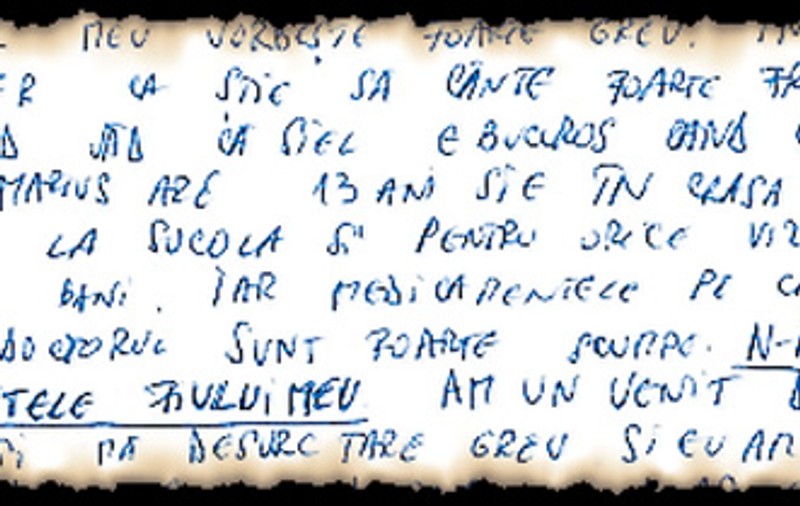 MEU VORBESTE FOARTE GREU.
CA STIE SA CÂNTE FOARTE
VĂD CĂ SIEL E BUCUROS CAND
MARIUS ARE 13 ANI SI E ÎN CLASA
LA SUCOLA SI PENTRU ORICE
BANI. IAR MEDICAMENTELE PE
DOCTORUL SUNT FOARTE SCUMPE. N-
TELE FIULUI MEU AM UN VENIT
MA DESURC TARE GREU SI EU AM